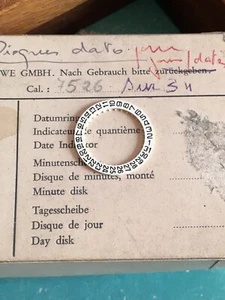 Disques dato.
WE GMBH. Nach Gebrauch bitte zurückgeben.
Cal.: 7526 Sur 3H
Datumring
Indicateur de quantième
Date Indicator
Minutenscheibe
Disque de minutes, monté
Minute disk
Tagesscheibe
Disque de jour
Day disk